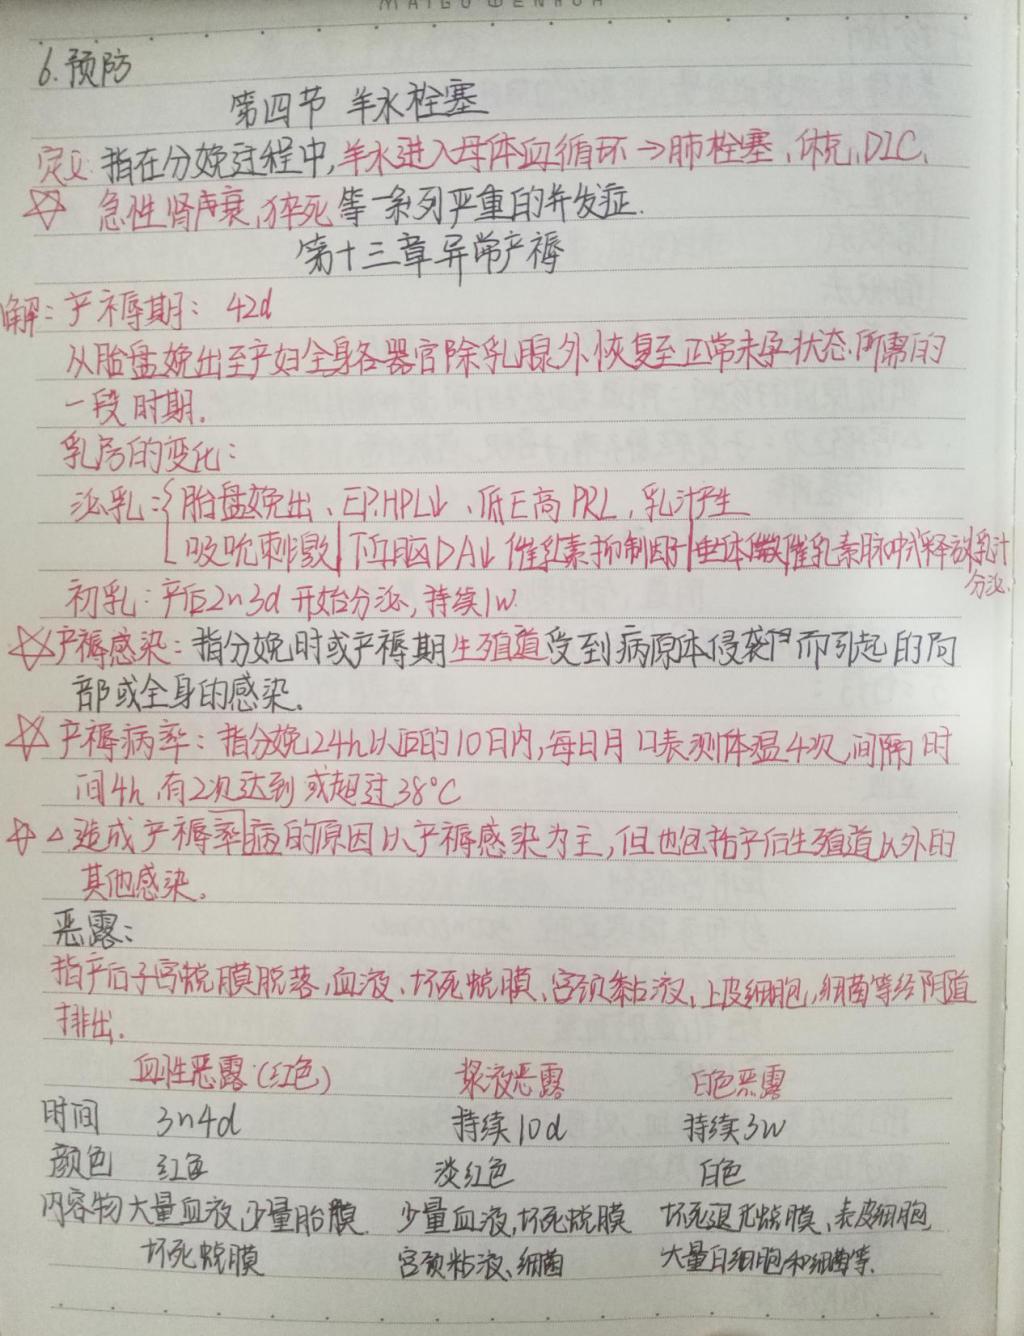 6.预防
第四节 羊水栓塞
定义:指在分娩过程中,羊水进入母体血循环→肺栓塞、休克、DIC、
☆ 急性肾衰、猝死等一系列严重的并发症.
第十三章异常产褥
解:产褥期: 42d
从胎盘娩出至产妇全身各器官除乳腺外恢复至正常未孕状态所需的
一段时期.
乳房的变化:
泌乳:{胎盘娩出、E.P.HPL↓、低E高PRL,乳汁产生
吸吮刺激|下丘脑DA↓催乳素抑制因子|垂体催乳素脉冲式释放乳汁
分泌.
初乳:产后2~3d开始分泌,持续1w.
☆产褥感染:指分娩时或产褥期生殖道受到病原体侵袭而引起的局
部或全身的感染.
☆产褥病率:指分娩24h以后的10日内,每日用口表测体温4次,间隔时
间4h,有2次达到或超过38°C
☆△造成产褥率病的原因以产褥感染为主,但也包括产后生殖道以外的
其他感染.
恶露:
指产后子宫蜕膜脱落,血液、坏死蜕膜、宫颈黏液、上皮细胞,细菌等经阴道
排出.
血性恶露(红色) 浆液恶露 白色恶露
时间 3~4d 持续10d 持续3w
颜色 红色 淡红色 白色
内容物 大量血液,少量胎膜 少量血液,坏死蜕膜 坏死退化蜕膜、表皮细胞
坏死蜕膜 宫颈粘液、细菌 大量白细胞和细菌等.